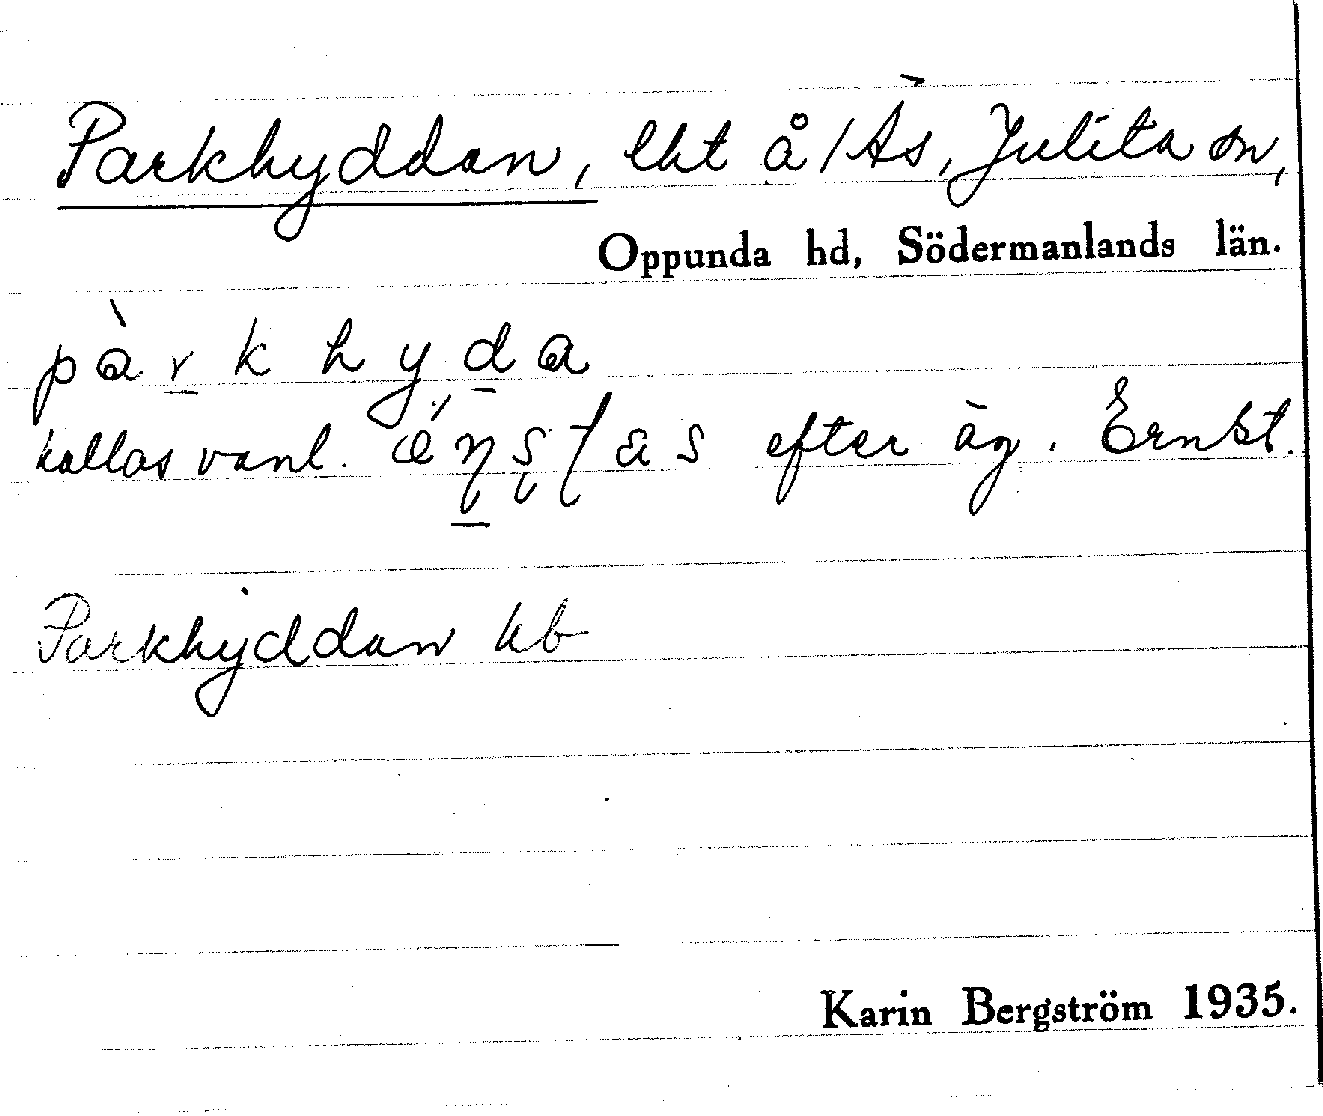 Parkhyddan, lht å 1 Ås, Julita sn,
Oppunda hd, Södermanlands län.
pàrkhyda
kallas vanl. efter äg. Ernst.
Parkhyddan kb
Karin Bergström 1935.